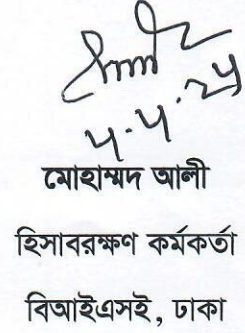 মোহাম্মদ আলী
হিসাবরক্ষণ কর্মকর্তা
বিআইএসই, ঢাকা